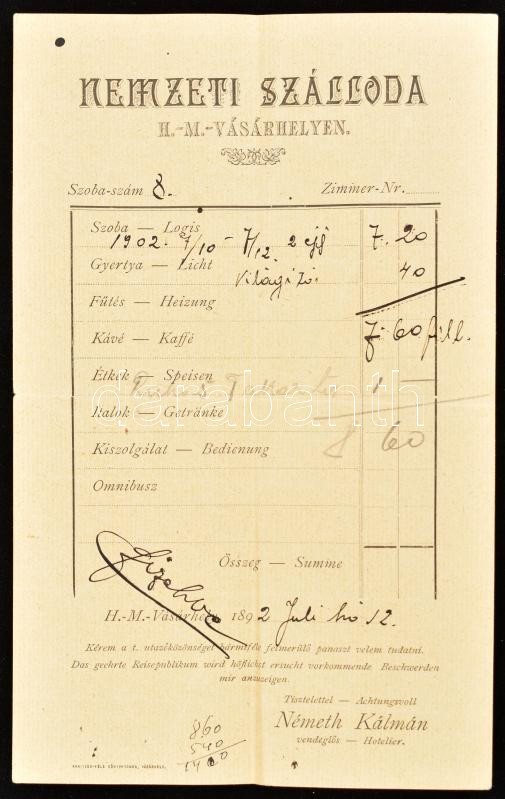 NEMZETI SZÁLLODA
H.-M.-VÁSÁRHELYEN.
Szoba-szám 8. Zimmer-Nr.
Szoba — Logis 7. 20
1902. 7/10 - 7/12. 2 éjj
Gyertya — Licht 40
Világítás
Fűtés — Heizung
Kávé — Kaffé 7. 60 fill.
Étkék — Speisen 1 —
Italok — Getränke
8 60
Kiszolgálat — Bedienung
Omnibusz
Összeg — Summe
Fizetve
H.-M.-Vásárhely, 1892 Juli hó 12.
Kérem a t. utazóközönséget bármiféle felmerülő panaszt velem tudatni.
Das geehrte Reisepublikum wird höflichst ersucht vorkommende Beschwerden
mir anzuzeigen.
Tisztelettel — Achtungsvoll
Németh Kálmán
vendéglős — Hotelier.
860
540
1400
darabanth